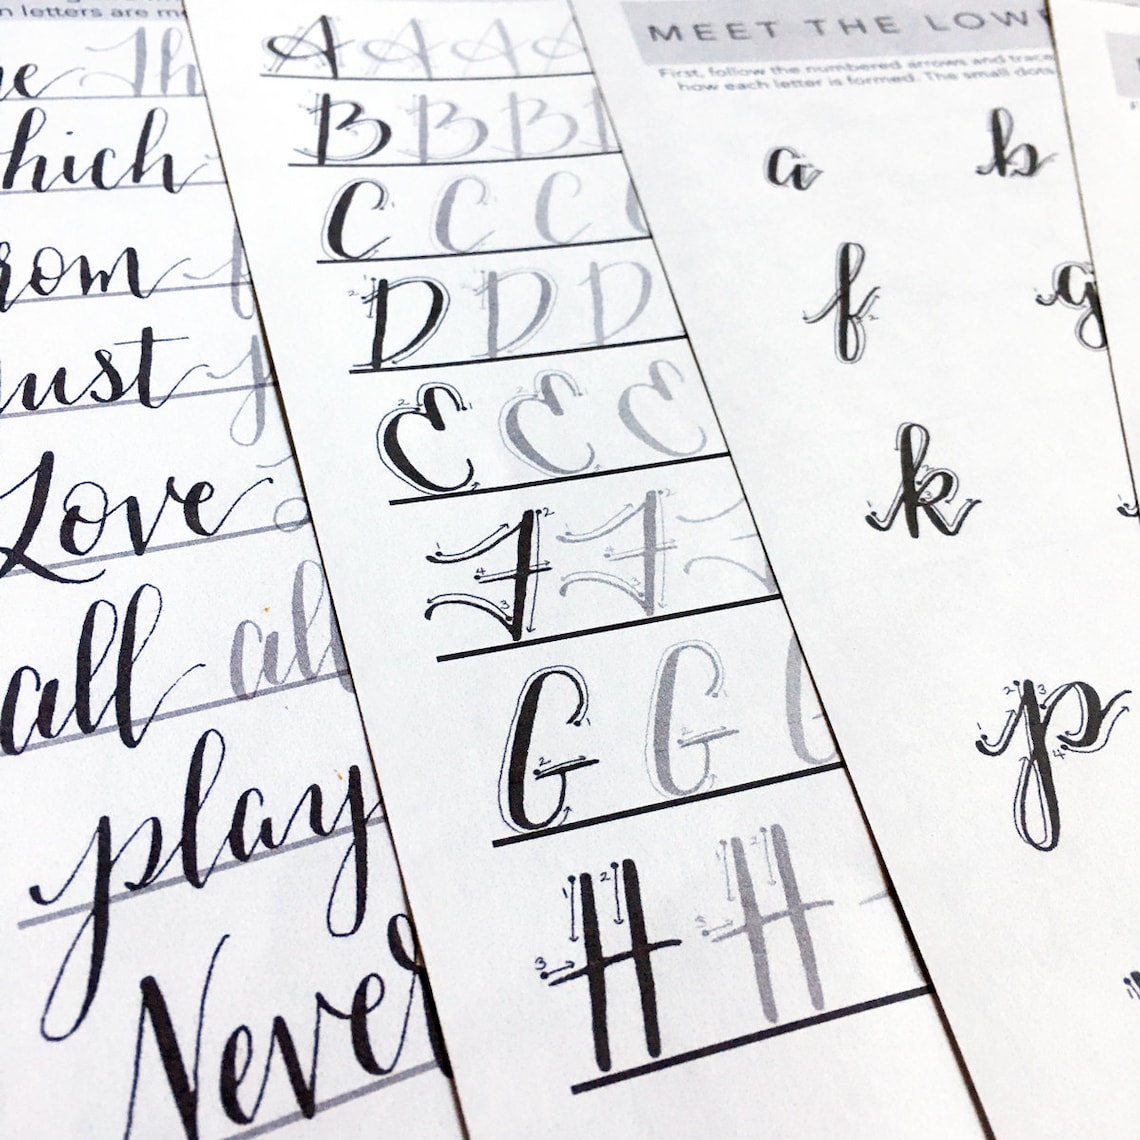 n letters are m
he Th
hich
rom f
ust j
Love
all all
play
Never
A A A A
B B B B
C C C C
D D D
E E E
F F
G G G
H H
MEET THE LOW
First, follow the numbered arrows and trace
how each letter is formed. The small dots
a b
f g
k
p